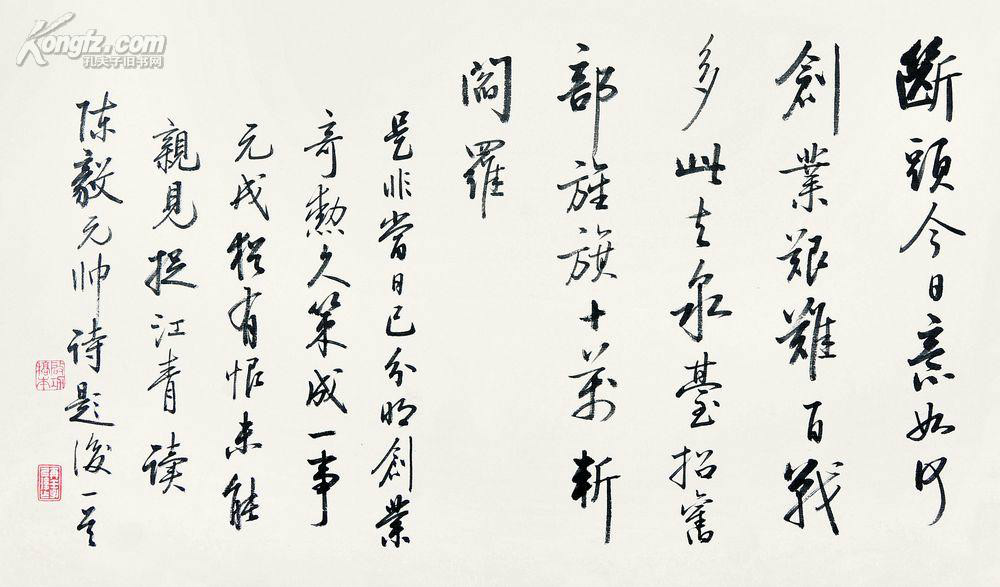 斷頭今日意如何
創業艱難百戰
多此去泉臺招舊
部旌旗十萬斬
閻羅
是非當日已分明創業
奇勳久策成一事
元戎猶有恨未能
親見捉江青读
陈毅元帅诗题後一首
Kongfz.com
孔夫子旧书网